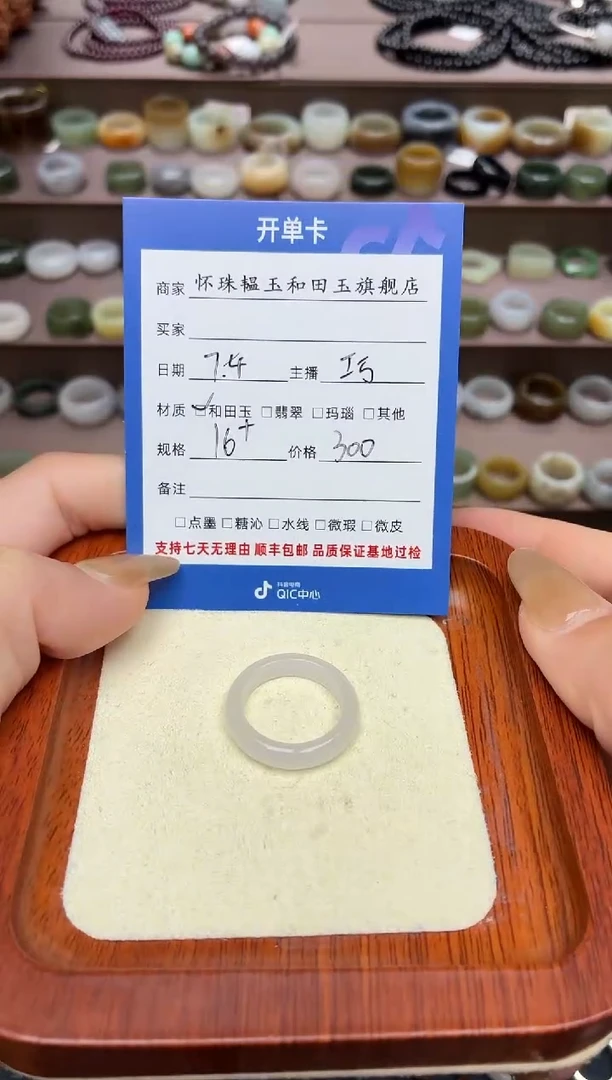 开单卡
商家 怀珠韫玉和田玉旗舰店
买家
日期 7.4 主播 巧
材质 ☑和田玉 □翡翠 □玛瑙 □其他
规格 16+ 价格 300
备注
□点墨 □糖沁 □水线 □微瑕 □微皮
支持七天无理由 顺丰包邮 品质保证基地过检
抖音电商
QIC中心